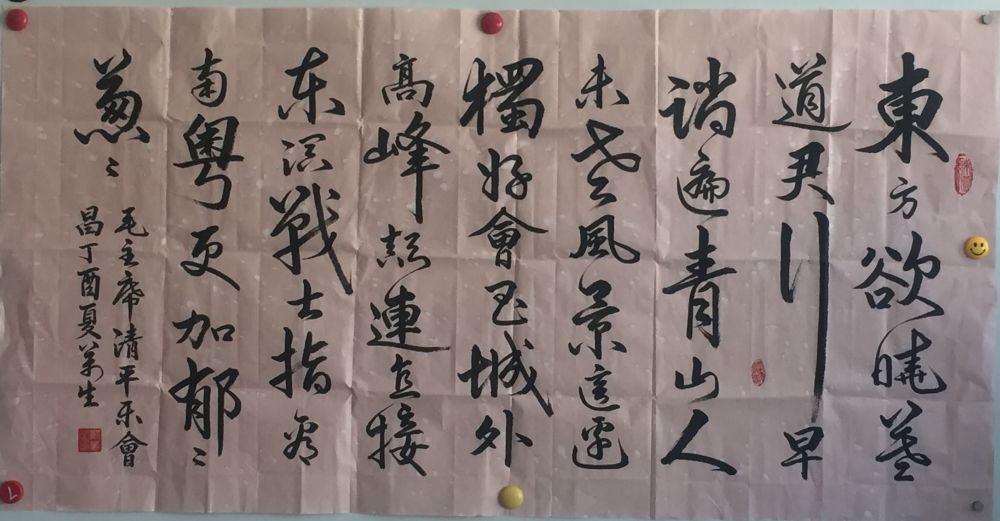 東方欲曉莫
道君行早
踏遍青山人
未老風景這邊
獨好會昌城外
高峰顛連直接
东溟戰士指看
南粵更加郁〻
蔥〻
毛主席清平乐會
昌丁酉夏生